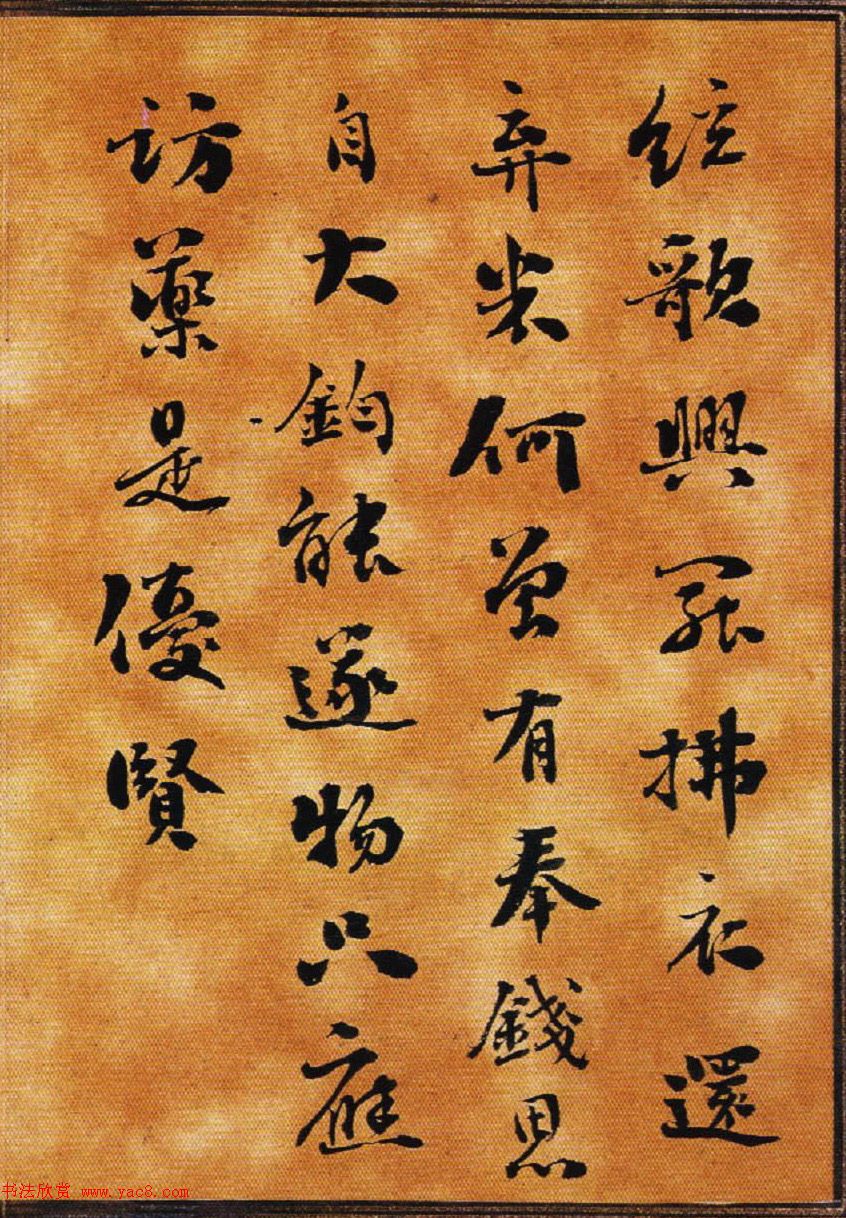 絃歌興罷拂衣還
弃米何曾有奉錢思
自大鈞能遂物只應
訪藥是優賢
书法欣赏 www.yac8.com